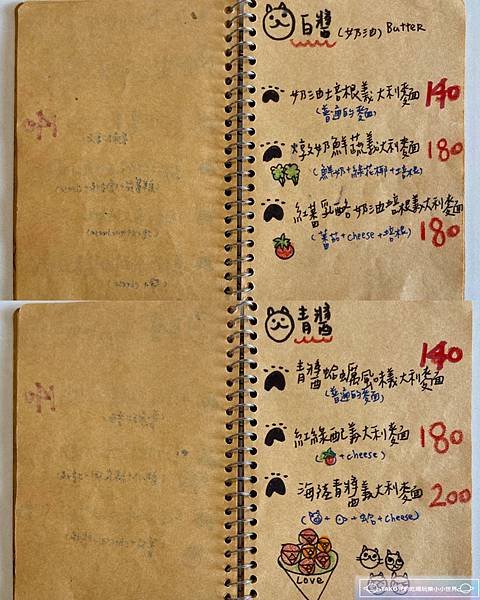 白醬 (奶油) Butter
奶油培根義大利麵 140
(普通的麵)
燉奶鮮蔬義大利麵 180
(鮮奶+綠花椰+培根)
紅蕃乳酪奶油培根義大利麵 180
(蕃茄+cheese+培根)
青醬
青醬蛤蠣風味義大利麵 140
(普通的麵)
紅綠配義大利麵 180
(+cheese)
海陸青醬義大利麵 200
(++蛤+cheese)
Love